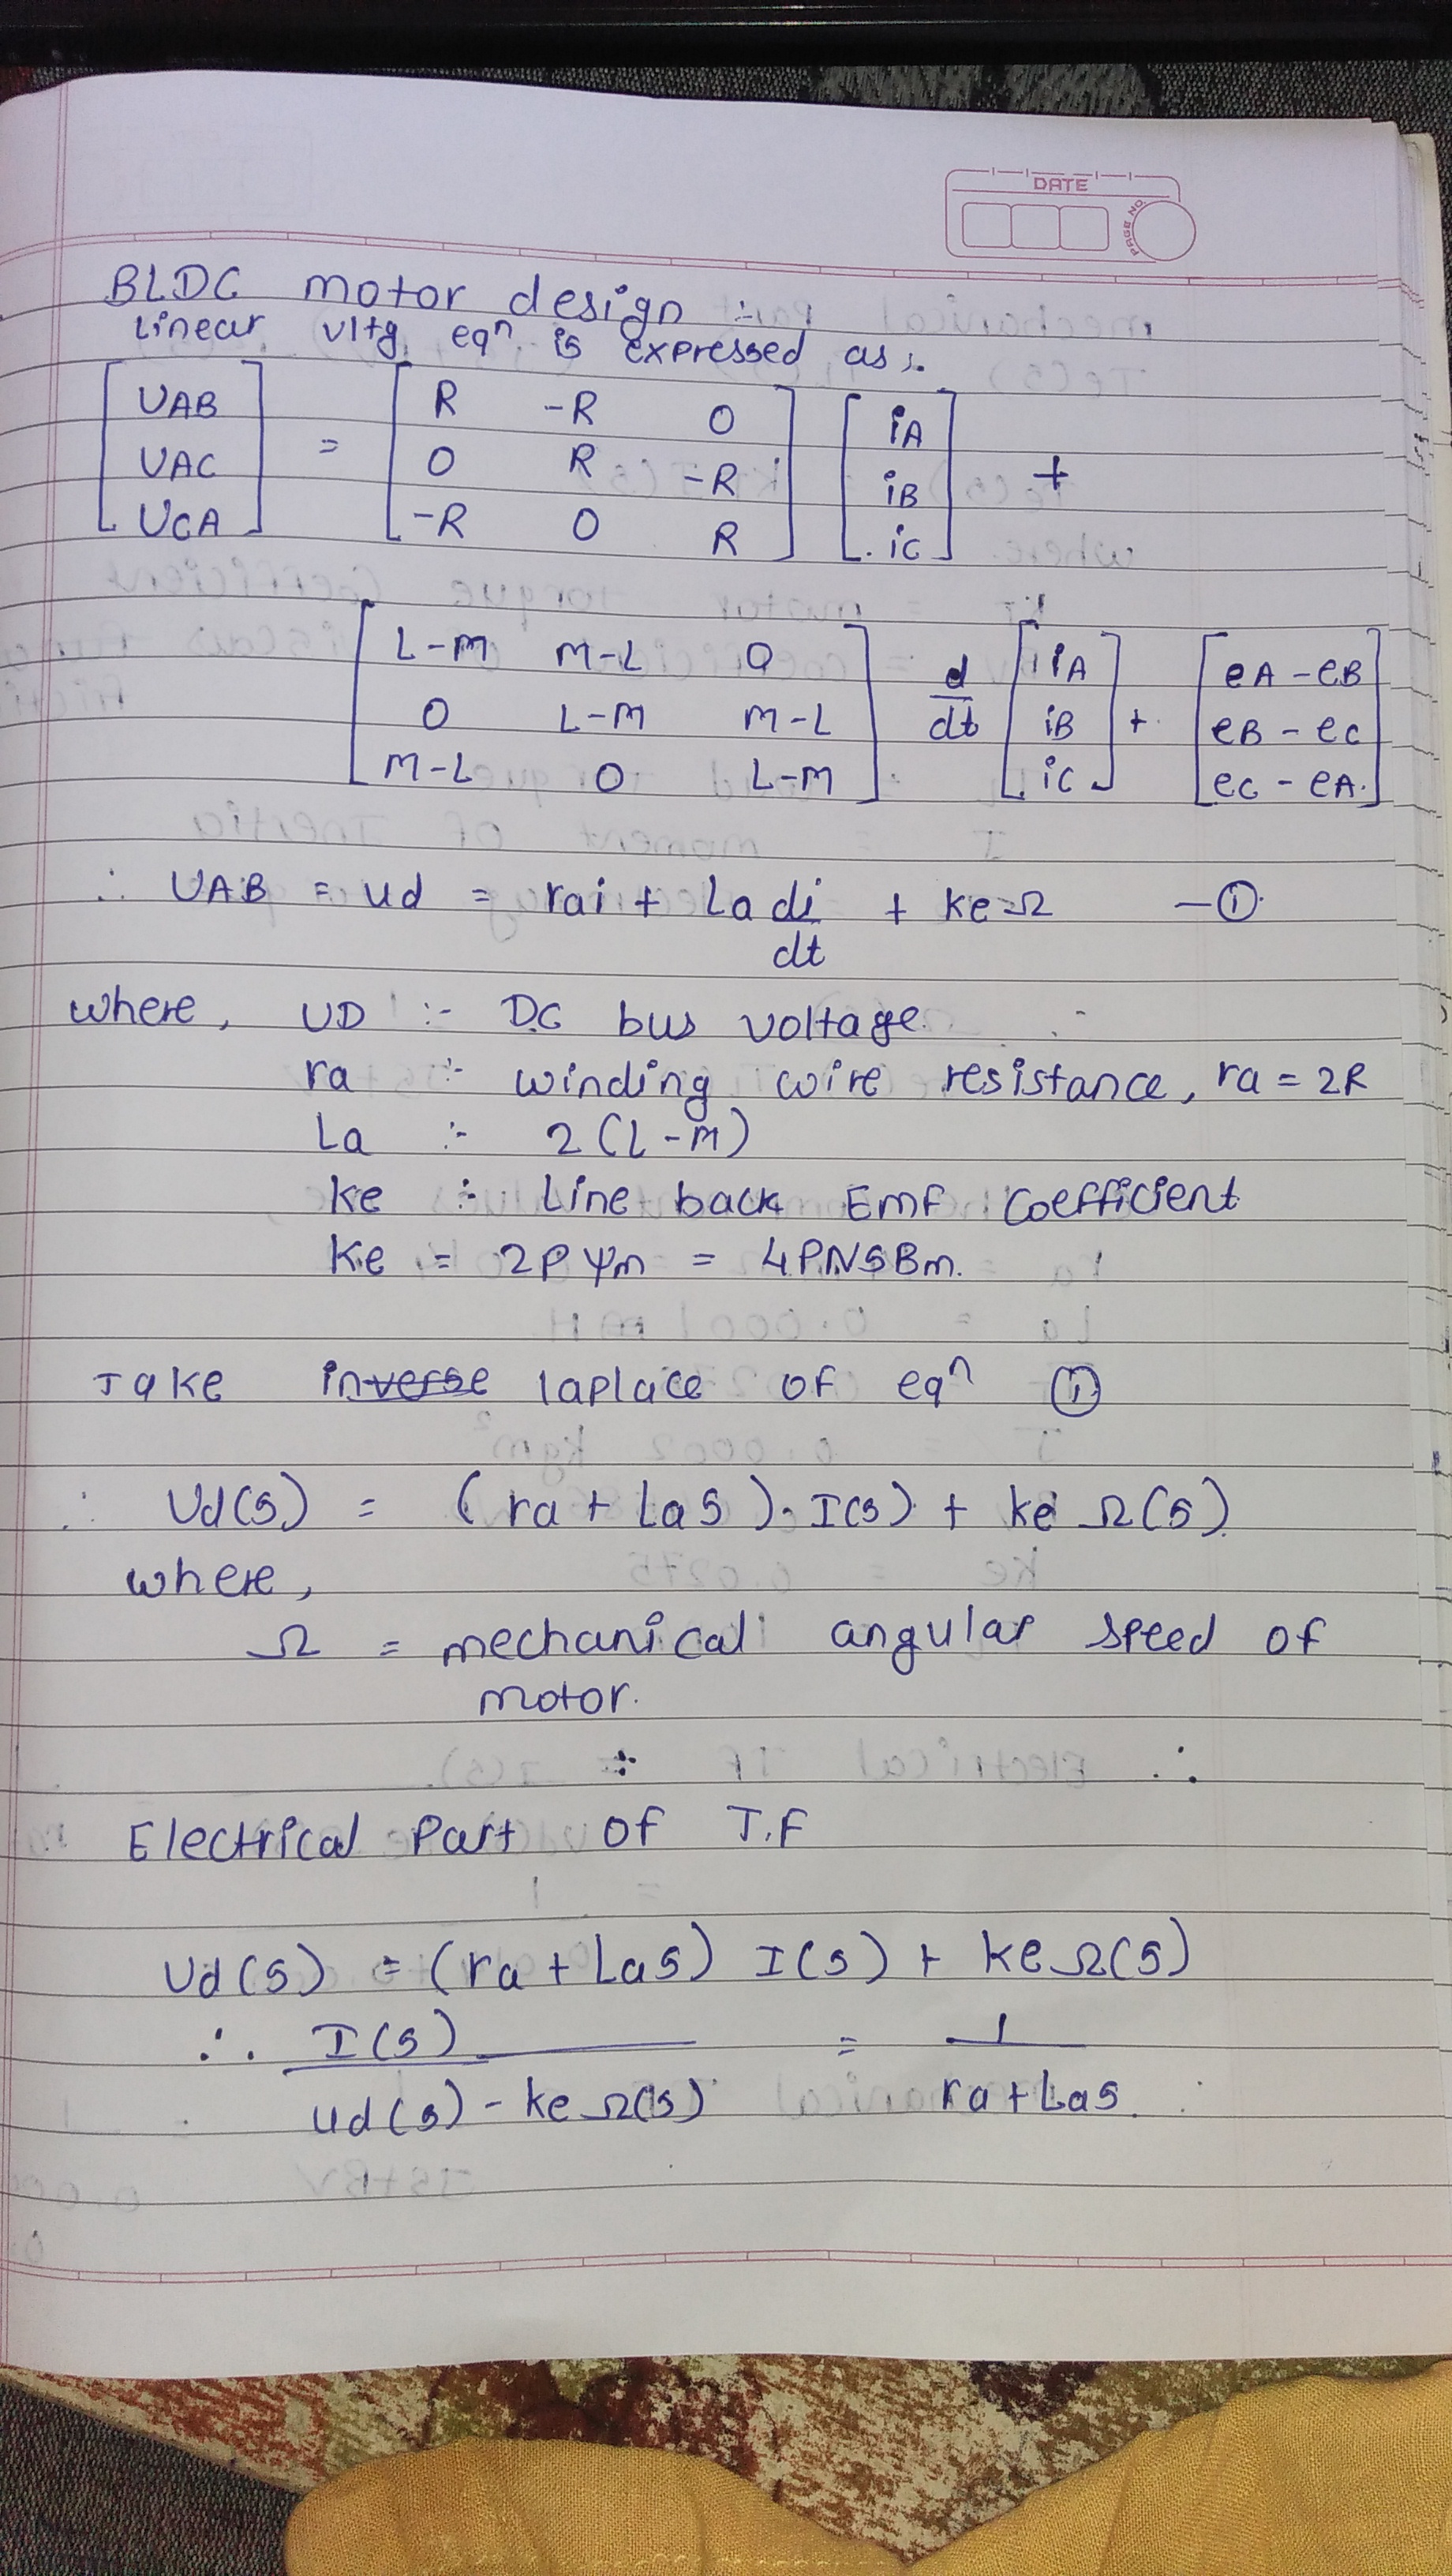 DATE
PAGE NO.
BLDC motor design :-
Linear vltg eqⁿ is expressed as :-
[UAB UAC UCA] = [R -R 0; 0 R -R; -R 0 R] [iA iB iC] +
[L-M M-L 0; 0 L-M M-L; M-L 0 L-M] d/dt [iA iB iC] + [eA - eB; eB - eC; eC - eA]
∴ UAB = ud = rai + La di/dt + ke Ω —①
where, UD :- DC bus voltage.
ra :- winding wire resistance, ra = 2R
La :- 2(L-M)
ke :- Line back EMF Coefficient
Ke = 2PΨm = 4PNSBm.
Take inverse laplace of eqⁿ ①
∴ Ud(s) = (ra + Las). I(s) + ke Ω(s)
where,
Ω = mechanical angular speed of
motor.
Electrical Part of T.F
Ud(s) = (ra + Las) I(s) + ke Ω(s)
∴ I(s) / ud(s) - ke Ω(s) = 1 / ra + Las